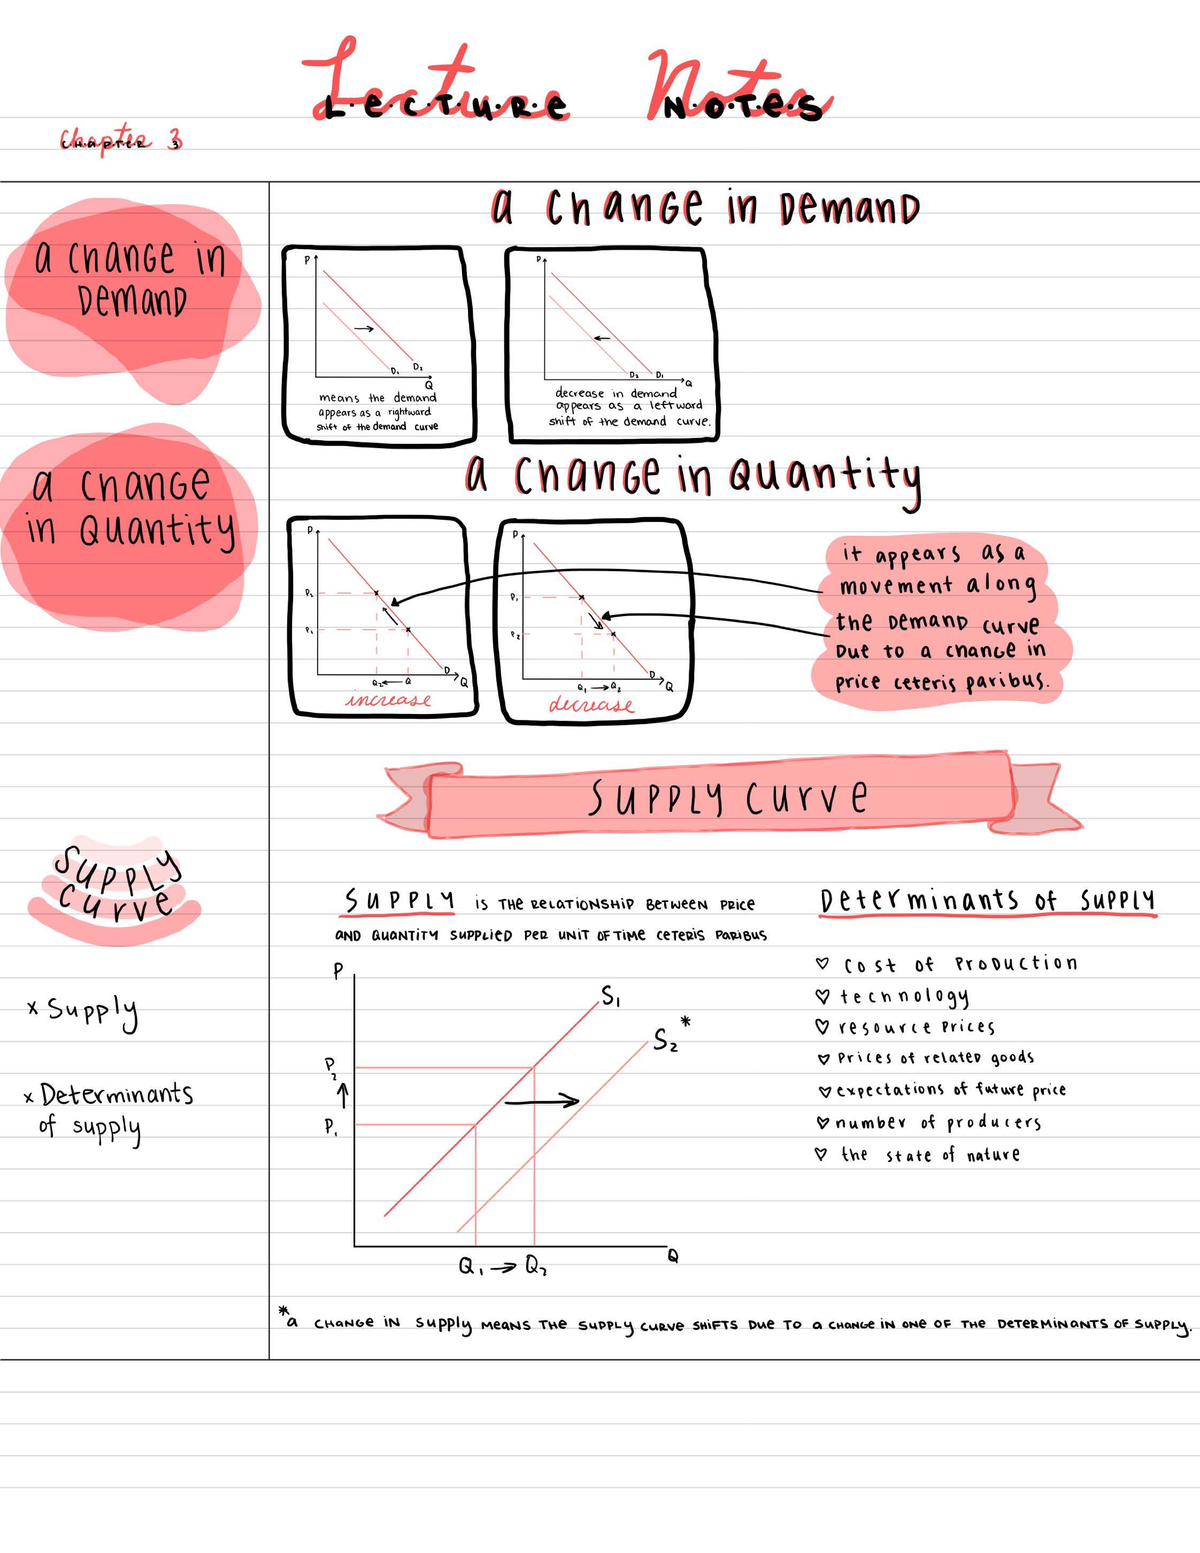 Lecture Notes
L·E·C·T·U·R·E NOTES
Chapter 3
CHAPTER 3
a change in Demand
a change in
Demand
P
D₁ D₂
Q
means the demand
appears as a rightward
shift of the demand curve
P
D₂ D₁
Q
decrease in demand
appears as a leftward
shift of the demand curve.
a change in Quantity
a change
in Quantity
P
P₂
P₁
D
Q₂ ← Q
Q
increase
P
P₁
P₂
D
Q₁ → Q₂
Q
decrease
it appears as a
movement along
the Demand curve
Due to a change in
price ceteris paribus.
Supply Curve
Supply
Curve
x Supply
x Determinants
of supply
SUPPLY is THE RELATIONSHIP BETWEEN PRICE
AND QUANTITY SUPPLIED PER UNIT OF TIME CETERIS PARIBUS
P
S₁
S₂ *
P₂
↑
P₁
Q₁ → Q₂
Q
Determinants of Supply
♡ cost of Production
♡ technology
♡ resource Prices
♡ Prices of related goods
♡ expectations of future price
♡ number of producers
♡ the state of nature
*a CHANGE IN supply MEANS THE SUPPLY CURVE SHIFTS DUE TO a CHANGE IN ONE OF THE DETERMINANTS OF SUPPLY.